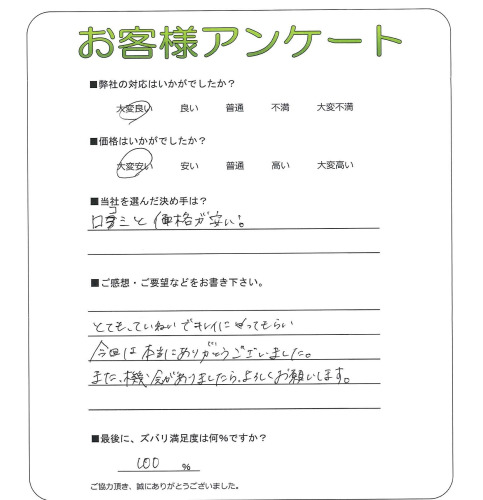 お客様アンケート
■弊社の対応はいかがでしたか？
大変良い 良い 普通 不満 大変不満
■価格はいかがでしたか？
大変安い 安い 普通 高い 大変高い
■当社を選んだ決め手は？
口コミと価格が安い。
■ご感想・ご要望などをお書き下さい。
とても、ていねいでキレイにやってもらい
今回は本当にありがとうございました。
また、機会がありましたら、よろしくお願いします。
■最後に、ズバリ満足度は何％ですか？
100 ％
ご協力頂き、誠にありがとうございました。